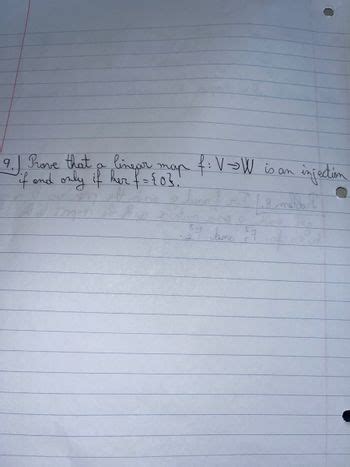 9.) Prove that a linear map f: V→W is an injection
if and only if ker f = {0}.